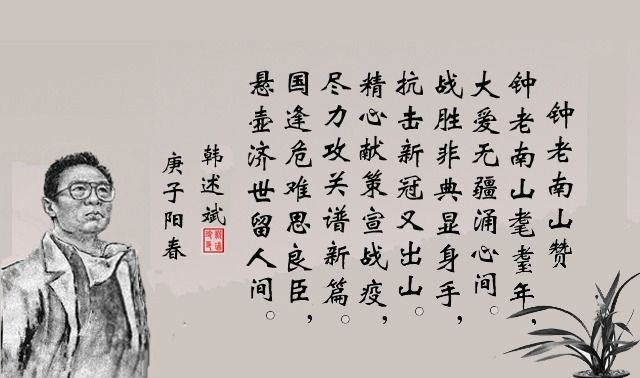 钟老南山赞
钟老南山耄耋年，
大爱无疆涌心间。
战胜非典显身手，
抗击新冠又出山。
精心献策宣战疫，
尽力攻关谱新篇。
国逢危难思良臣，
悬壶济世留人间。
韩述斌
庚子阳春